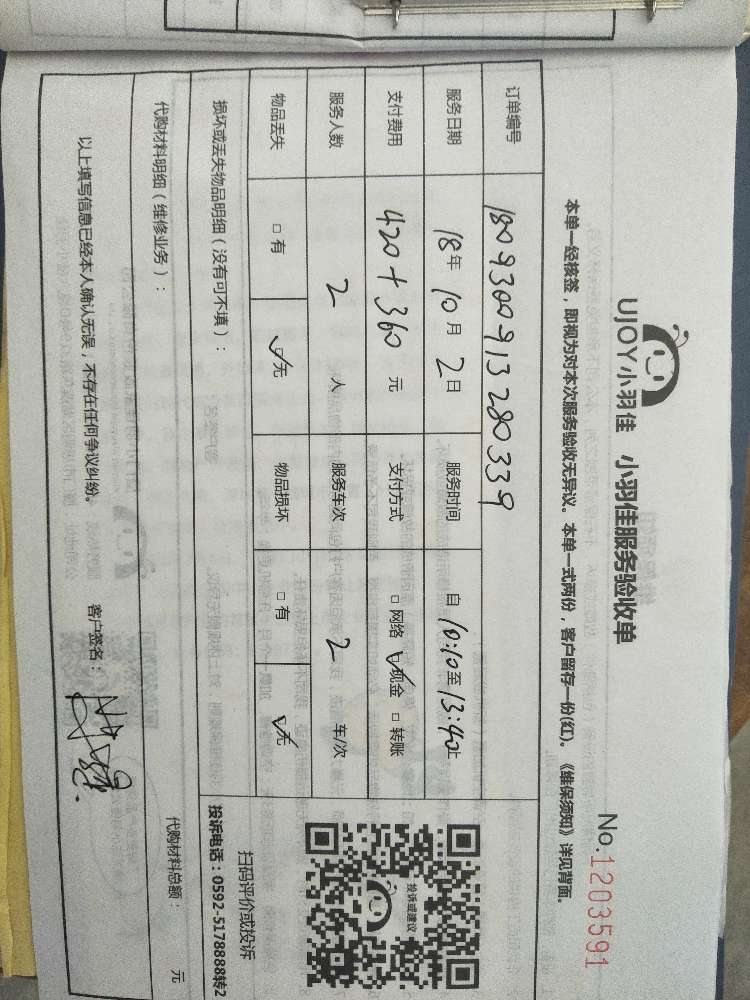 UJOY小羽佳 小羽佳服务验收单
No.1203591
本单一经核签，即视为对本次服务验收无异议。本单一式两份，客户留存一份(红)。《维保须知》详见背面。
订单编号 180930091328​0339
服务日期 18年 10月 2日 服务时间 自 10:10至 13:40止
支付费用 420+360 元 支付方式 □ 网络 ☑ 现金 □ 转账
服务人数 2 人 服务车次 2 车/次
物品丢失 □ 有 ☑ 无 物品损坏 □ 有 ☑ 无
损坏或丢失物品明细（没有可不填）：
投诉或建议
扫码评价或投诉
投诉电话：0592-5178888转2
代购材料明细（维修业务）：
代购材料总额： 元
以上填写信息已经本人确认无误，不存在任何争议纠纷。 客户签名：